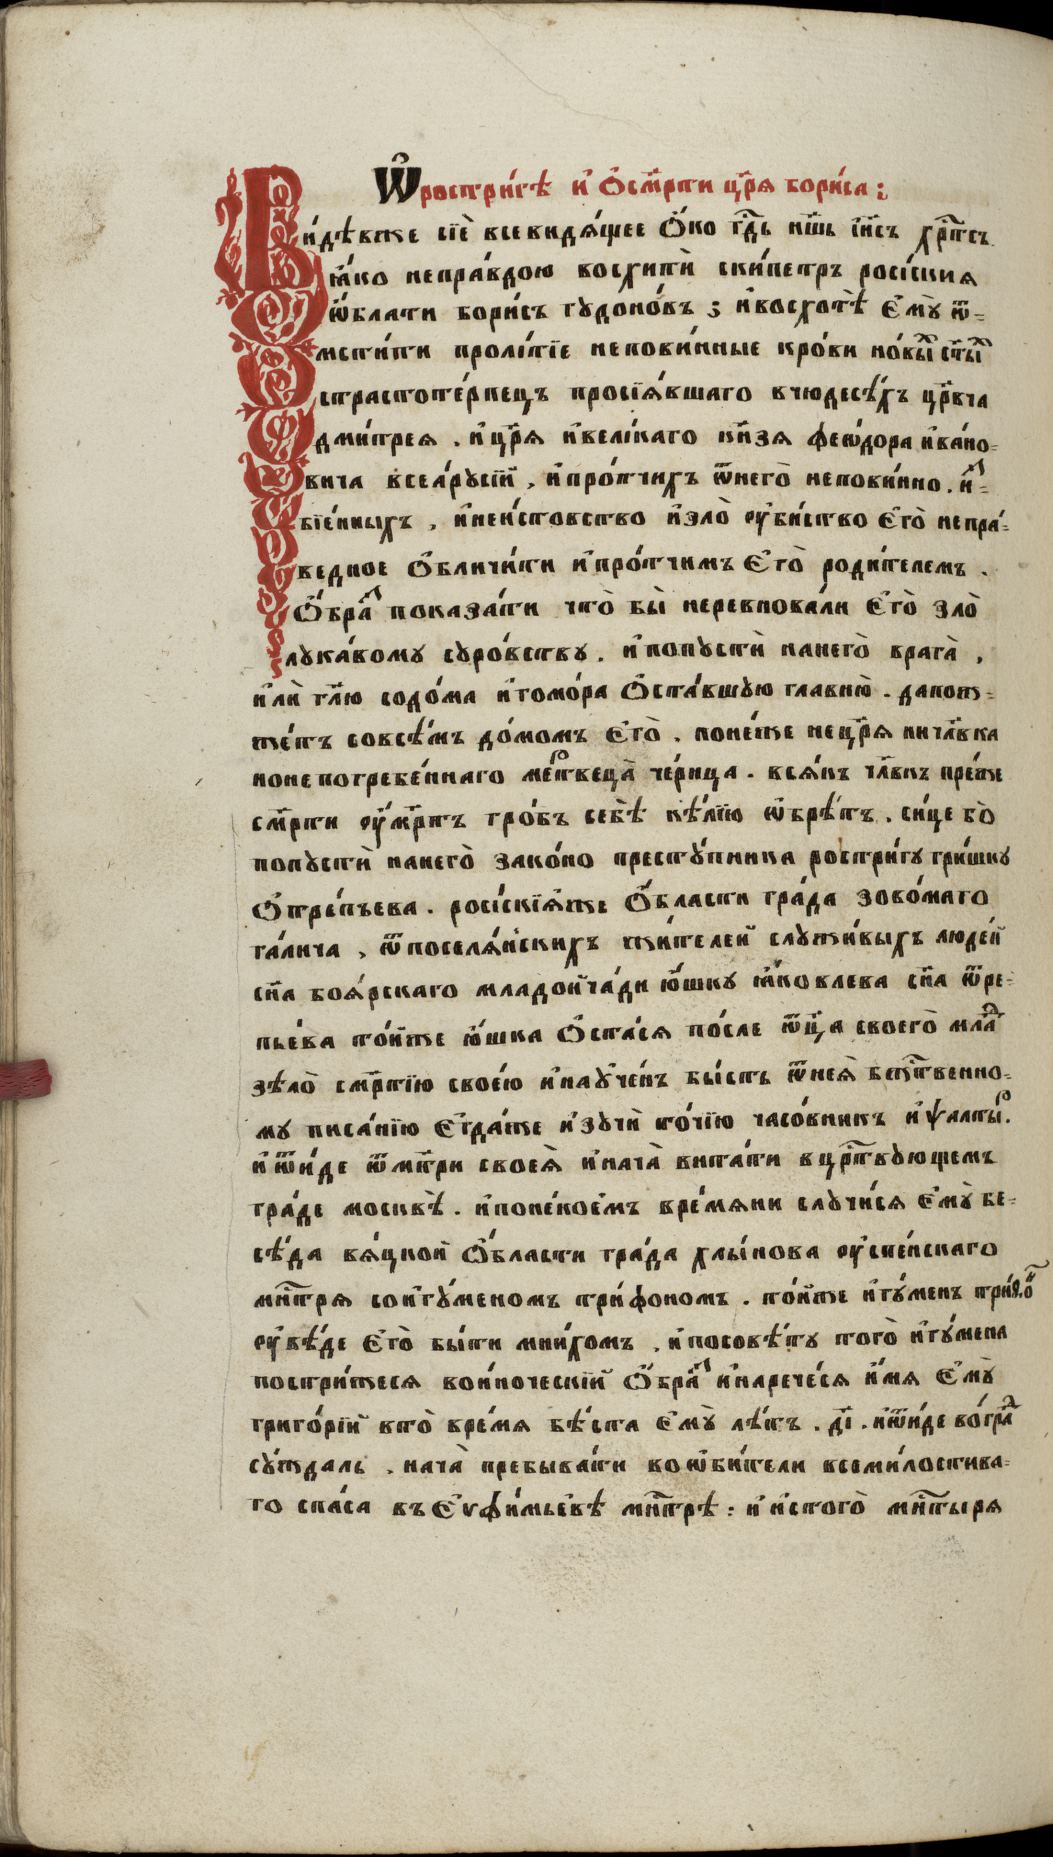 Ѡ҆ ростри́гѣ и҆ ѻ҆ см҃рти цр҃ѧ бори́са :
Ви́дѣвже сїѐ всевидѧ́щее ѻ҆́ко гдⷭ҇ь нш҃ь і҆и҃съ хрⷭ҇тосъ
ꙗ҆́ко непра́вдою восхитѝ ски́петръ росі́скиѧ
ѡ҆́бласти бори́съ годоно́въ ; и҆ восхотѣ̀ є҆мꙋ̀ ѿ=
мсти́ти проли́тїе непови́нные кро́ви но́выⷯ ст҃ыⷯ
страстоте́рпецъ просїѧ́вшаго в чюдесѣ́хъ црⷭ҇вча
дми́треѧ . и҆ цр҃ѧ и҆ вели́каго кн҃зѧ феѡ́дора и҆ва́но=
вича всеа́рꙋсїй , и҆ про́тчихъ ѿ него̀ непови́нно . и҆ⷥ=
бїе́нныхъ , и҆ неи́стовство и҆ зло̀ ᲂу҆би́ство є҆го̀ непра́=
ведное ѻ҆бличи́ти и҆ про́тчимъ є҆го̀ роди́телемъ .
ѻ҆́браⷥ показа́ти что̀ бы̀ неревнова́ли є҆го̀ зло̀
лꙋка́вомꙋ сꙋро́вствꙋ . и҆ попꙋстѝ на него̀ врага̀ ,
и҆лѝ гл҃ю содо́ма и҆ гомо́ра ѻ҆ста́вшꙋю главню̀ . да пож=
же́тъ со всѣ́мъ до́момъ є҆го̀ . поне́же не цр҃ѧ ни чл҃вка
но не погребе́ннаго ме́ртвеца̀ че́рнца . всѧ́къ чл҃вкъ пре́же
см҃рти ᲂу҆́мритъ гро́бъ себѣ̀ кѣ́лїю ѡ҆брѣ́тъ . си́це бо̀
попꙋстѝ на него̀ зако́но престꙋ́пника ростри́гꙋ гри́шкꙋ
ѻ҆тре́пъева . росі́скїѧже ѻ҆́бласти гра́да зово́маго
га́лича , ѿ поселѧ́нскихъ жи́телей слꙋжи́выхъ люде́й
сн҃а боѧ́рскаго младой ча́ди ю҆́шкꙋ ꙗ҆́ковлева сн҃а ѿре=
пье́ва то́йже ю҆́шка ѻ҆ста́сѧ по́сле ѿц҃а своего̀ млаⷣ
зѣло̀ см҃ртїю свое́ю и҆ наꙋ҆че́нъ бы́сть ѿ неѧ̀ бжⷭ҇твенно=
мꙋ писа́нїю є҆гда́же и҆зꙋчѝ то́чїю часо́вникъ и҆ ѱалты́ⷬ.
и҆ ѿи́де ѿ мт҃ри своеѧ̀ и҆ нача̀ вита́ти в црⷭ҇твꙋющемъ
гра́де москвѣ̀ . и҆ по не́коемъ вре́мѧни слꙋчи́сѧ є҆мꙋ̀ бе=
сѣ́да вѧ́цкой ѻ҆́бласти гра́да хлы́нова ᲂу҆спе́нскаго
мнⷭ҇трѧ со и҆гꙋ́меномъ три́фоном . то́йже и҆гꙋ́менъ
ᲂу҆вѣ́де є҆го̀ бы́ти мни́хомъ . и҆ по совѣ́тꙋ того̀ и҆гꙋ́мена
постри́жесѧ во и́ноческїй ѻ҆́браⷥ и҆ нарече́сѧ и҆́мѧ є҆мꙋ̀
григо́рїй в то̀ вре́мѧ бѣ́ста є҆мꙋ̀ лѣ́тъ . д҃і . и҆ ѿи́де во́ граⷣ
сꙋ́ждаль . нача̀ пребыва́ти во ѡ҆би́тели всеми́лостива=
го спа́са въ є҆ѵфи́мьевѣ мнⷭ҇трѣ : и҆ и҆с того̀ мнⷭ҇тырѧ